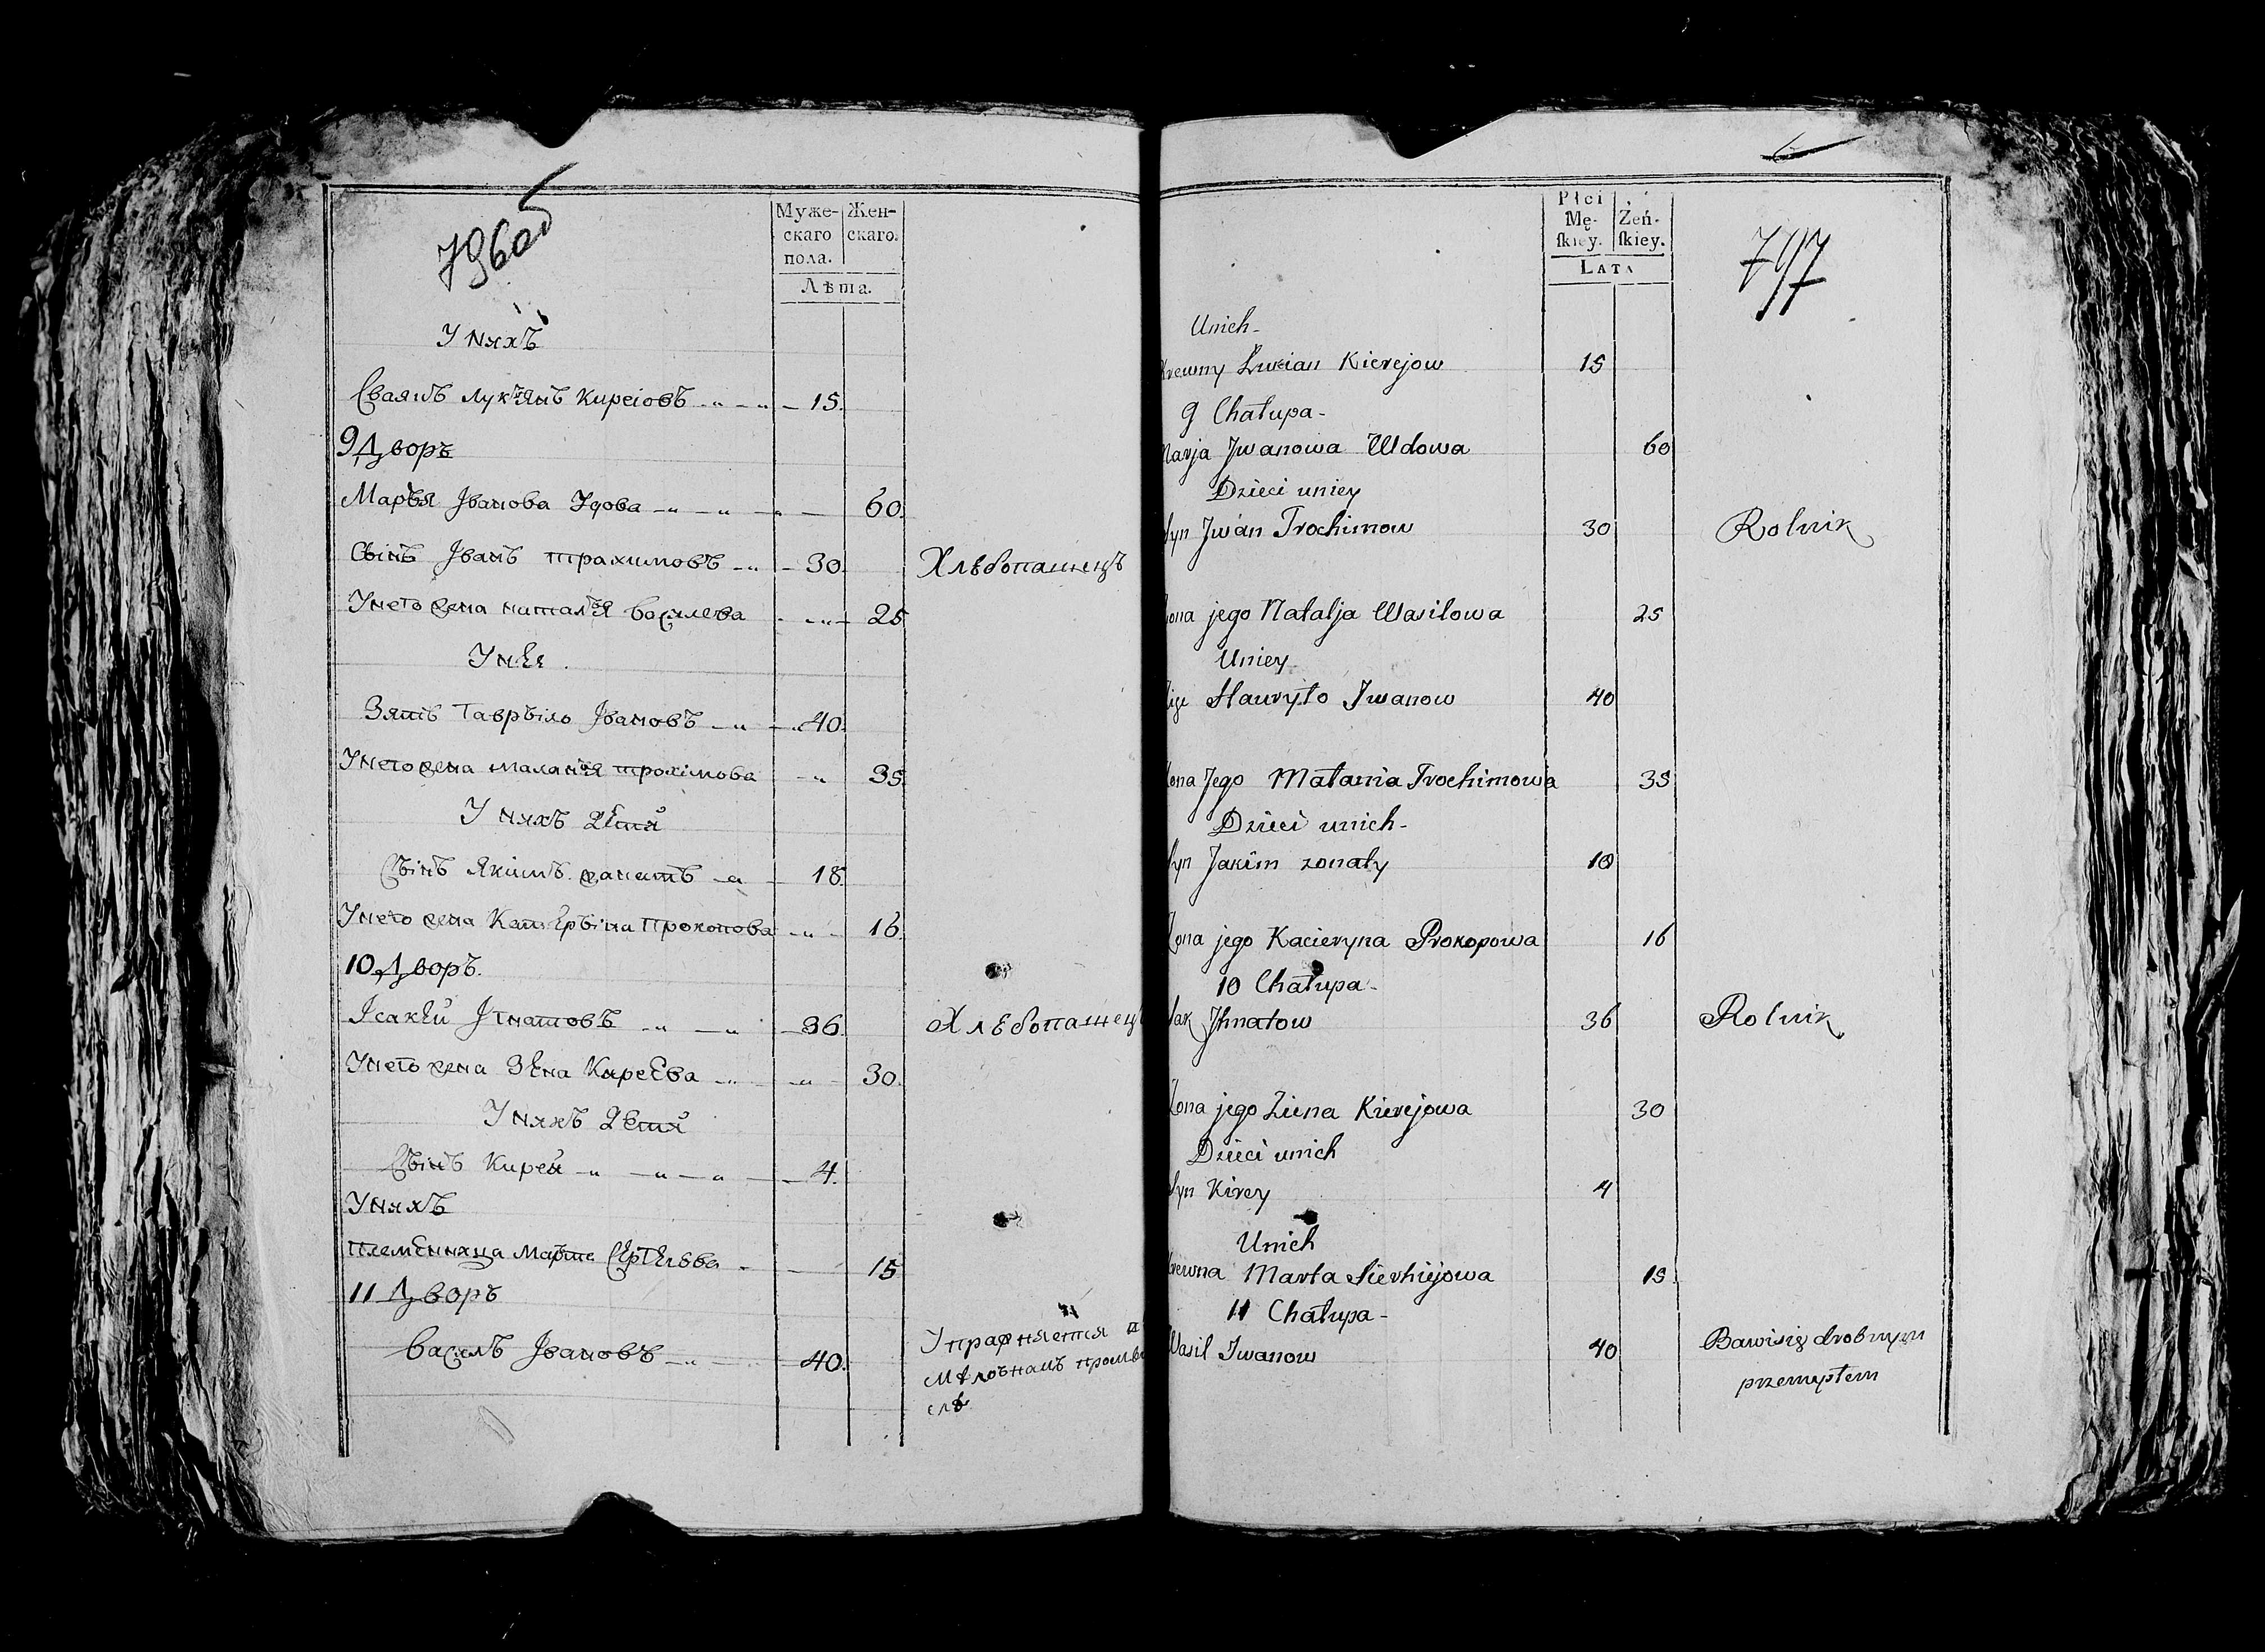 796об
Муже-
скаго
пола.
Жен-
скаго.
Лѣта.
У няхъ
Сваякъ Лукъянъ Киреіовъ 15.
9 Дворъ
Маръя Јванова Удова 60.
Сынъ Јванъ Трахимовъ 30. Хлѣбопашецъ
У него жена Наталъя Василева 25
У нея
Зять Гаврыло Јвановъ 40.
У него жена Маланъя Трохімова 35.
У няхъ дети
Сынъ Якімъ жанатъ 18.
У него жена Катерына Прокопова 16.
10 Дворъ.
Јсакей Јгнатовъ 36. Хлѣбопашец
У него жена Зена Киреева 30.
У няхъ дети
Сынъ Кирей 4.
У няхъ
Племенница Марта Сергеѣва 15
11 Дворъ
Василъ Јвановъ 40. Упражняется в
мѣлочнамъ промы
слѣ
797
Płci
Mę-
ſkiey.
Zeń-
ſkiey.
Lata
Unich-
Krewny Łukian Kierejow 15
9 Chałupa-
Marja Jwanowa Wdowa 60
Dzieci uniey
Syn Jwan Trochimow 30 Rolnik
Zona jego Natalja Wasilowa 25
Uniey
Hauryło Jwanow 40
Zona Jego Małania Trochimowa 35
Dzieci unich-
Syn Jakim zonaty 18
Zona jego Kacieryna Prokopowa 16
10 Chałupa-
Jhnatow 36 Rolnik
Zona jego Ziena Kierejowa 30
Dzieci unich
Syn Kirey 4
Unich
Krewna Marta Sierhiejowa 15
11 Chałupa-
Wasil Jwanow 40 Bawi się drobnym
przemysłem